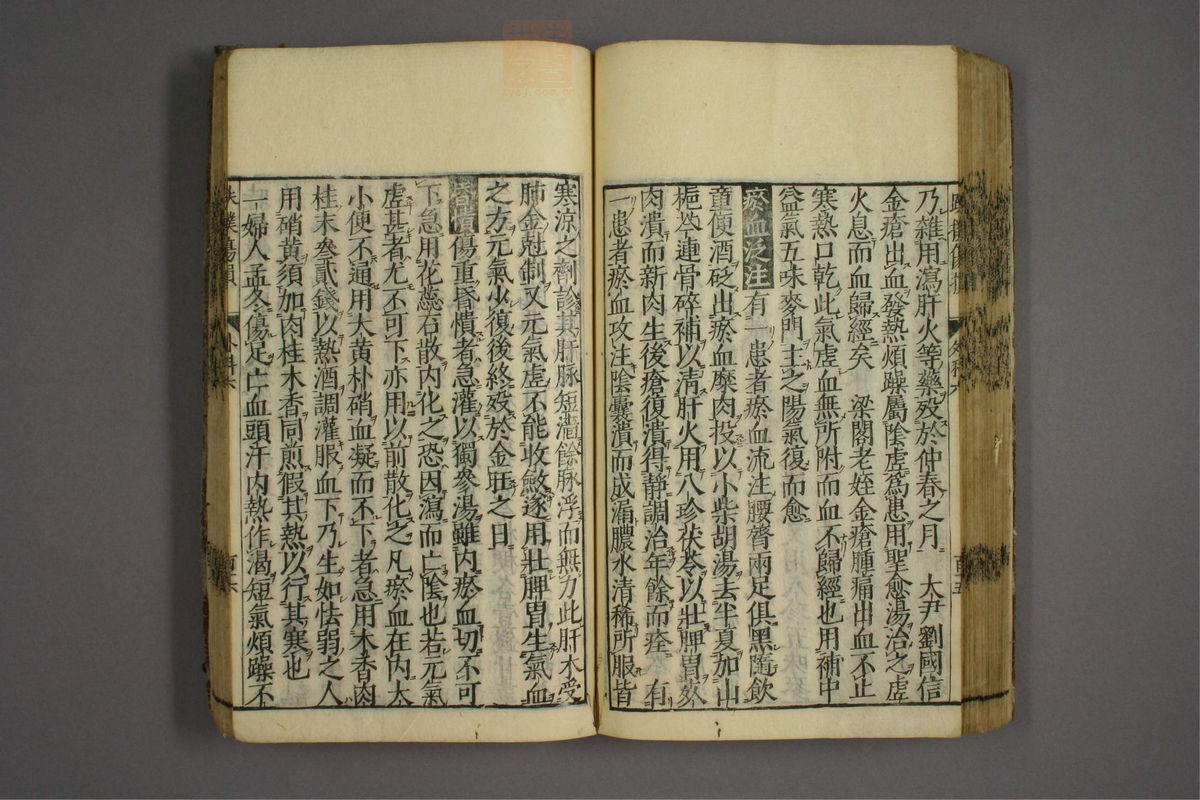 乃雜用瀉肝火等藥歿於仲春之月　大尹劉國信
金瘡出血發熱煩躁屬陰虛爲患用聖愈湯治之虛
火息而血歸經矣　梁閣老姪金瘡腫痛出血不止
寒熱口乾此氣虛血無所附而血不歸經也用補中
益氣五味麥門主之陽氣復而愈
瘀血泛注有一患者瘀血流注腰膂兩足俱黑隨飮
童便酒砭出瘀血糜肉投以小柴胡湯去半夏加山
梔芩連骨碎補以清肝火用八珍茯苓以壯脾胃
肉潰而新肉生後瘡復潰得靜調治年餘而痊　有
一患者瘀血攻注陰囊潰而成漏膿水清稀所服皆
寒涼之劑診其肝脉短澁餘脉浮而無力此肝木受
肺金尅制又元氣虛不能收斂遂用壯脾胃生氣血
之方元氣少復後終歿於金旺之日
昏憒傷重昏憒者急灌以獨參湯雖內瘀血切不可
下急用花蕊石散內化之恐因瀉而亡陰也若元氣
虛甚者尤不可下亦用以前散化之凡瘀血在內大
小便不通用大黄朴硝血凝而不下者急用木香肉
桂末叁貳錢以熱酒調灌服血下乃生如怯弱之人
用硝黄須加肉桂木香同煎假其熱以行其寒也
一婦人孟冬傷足亡血頭汗內熱作渴短氣煩躁不